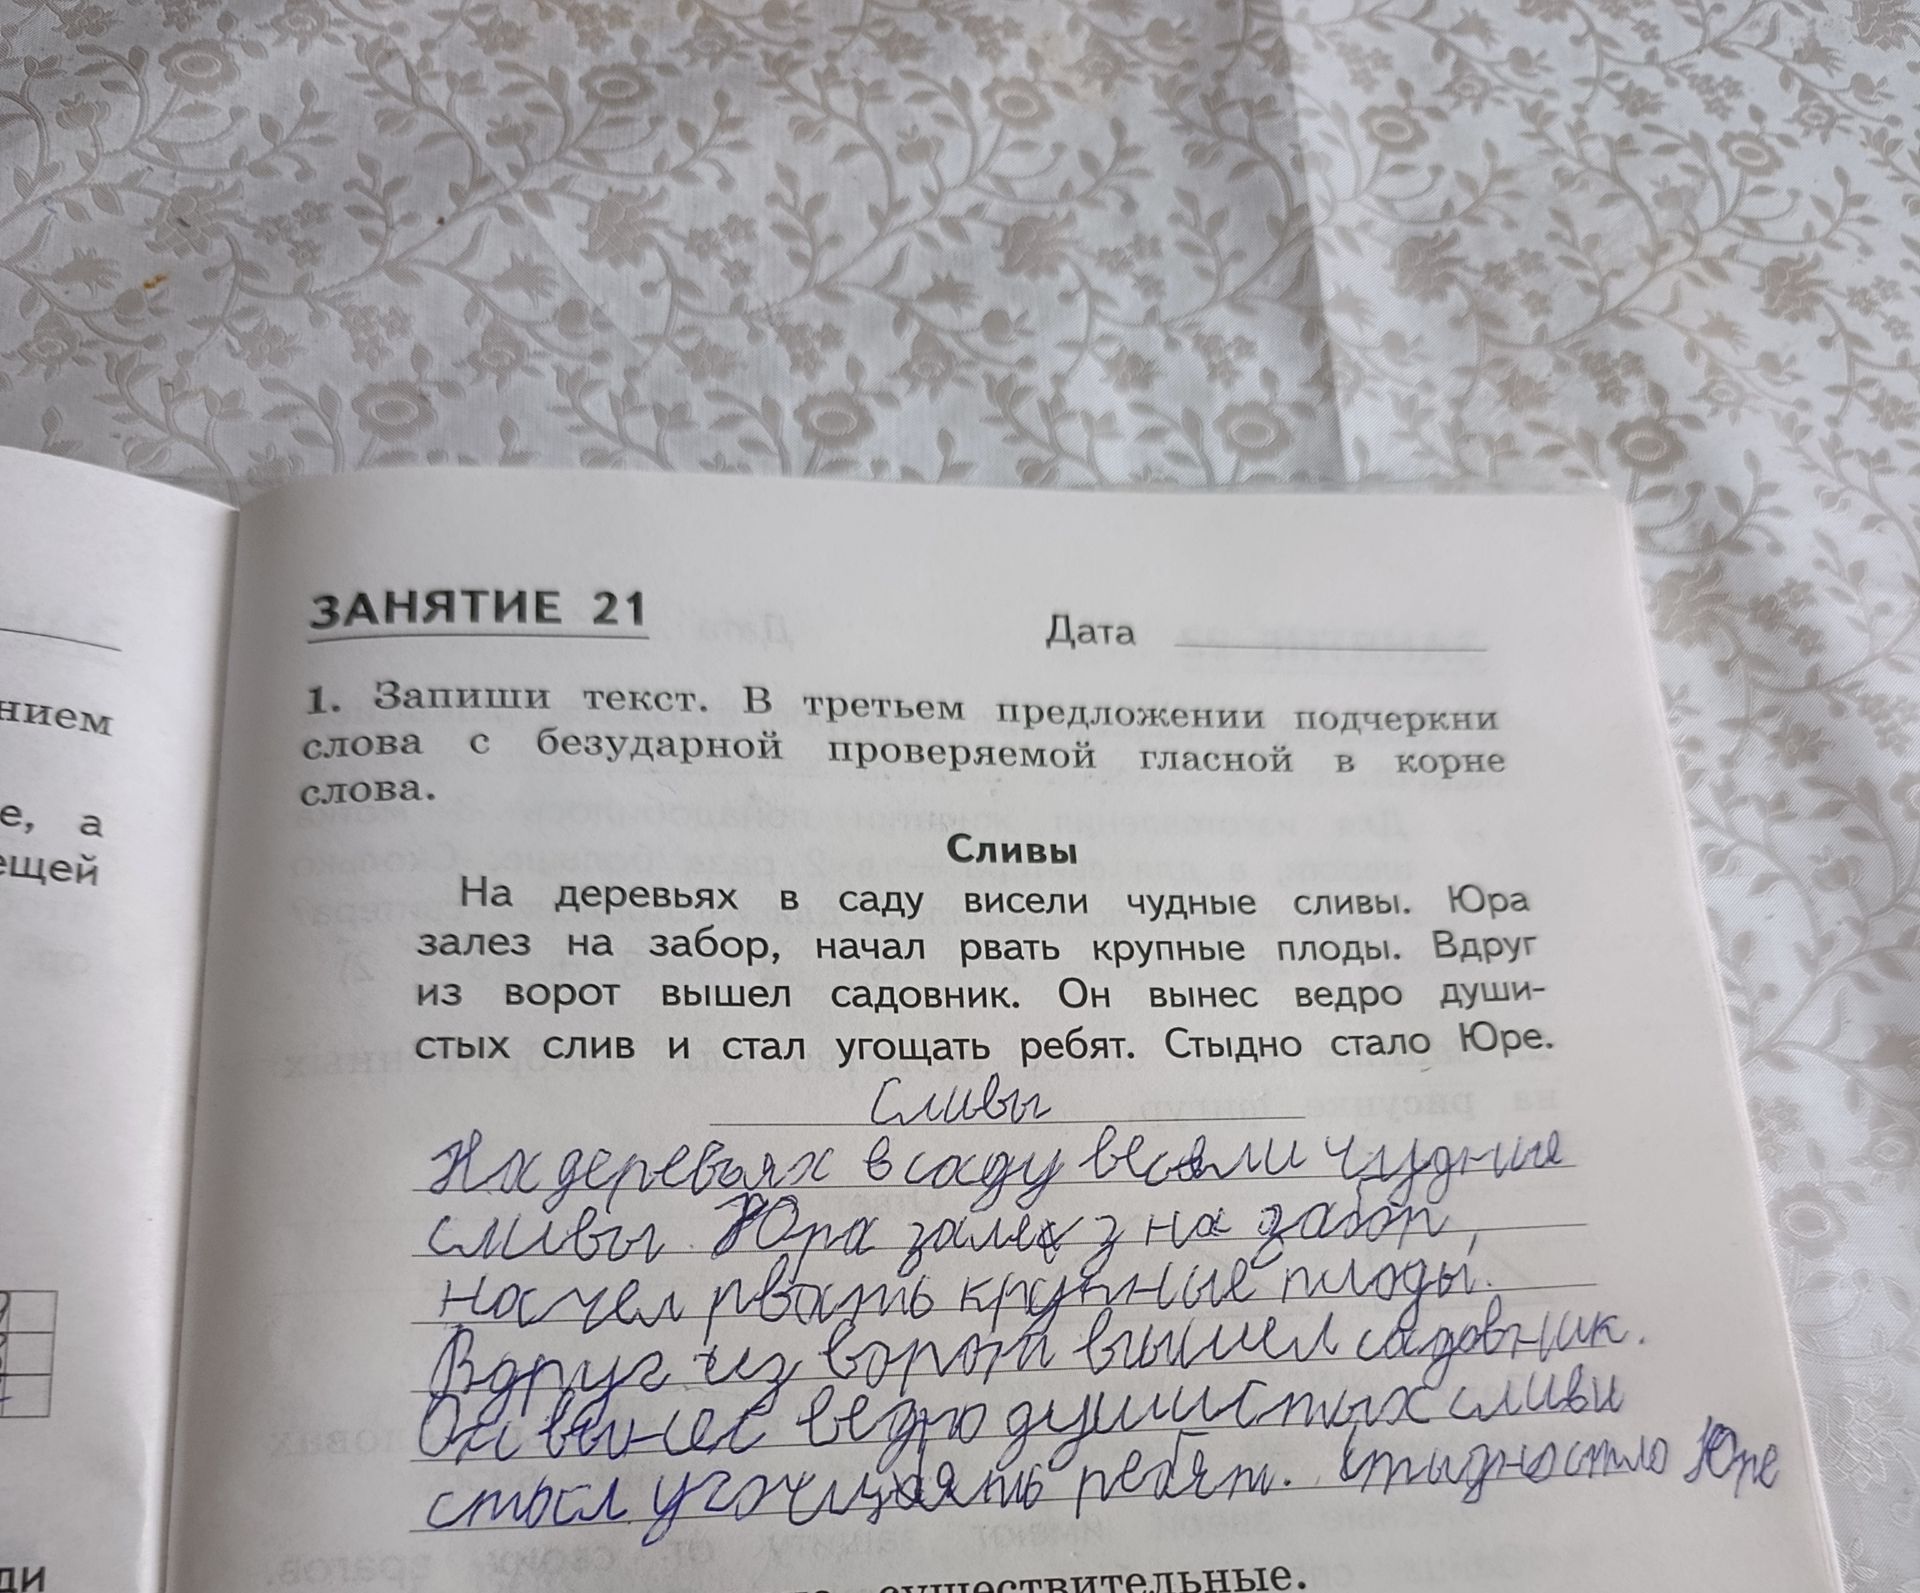 нием
е, а
ещей
ди
ЗАНЯТИЕ 21
Дата
1. Запиши текст. В третьем предложении подчеркни
слова с безударной проверяемой гласной в корне
слова.
Сливы
На деревьях в саду висели чудные сливы. Юра
залез на забор, начал рвать крупные плоды. Вдруг
из ворот вышел садовник. Он вынес ведро души-
стых слив и стал угощать ребят. Стыдно стало Юре.
Сливы
На деревьях в саду весели чудные
сливы. Юра залез на забор,
начел рвать крупные плоды.
Вдруг из ворот вышел садовник.
Он вынес ведро душистых слив и
стал угощять ребят. Стыдно стло Юре
существительные.